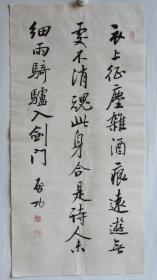 衣上征塵雜酒痕遠遊無
處不消魂此身合是詩人未
細雨騎驢入劍门
啓功